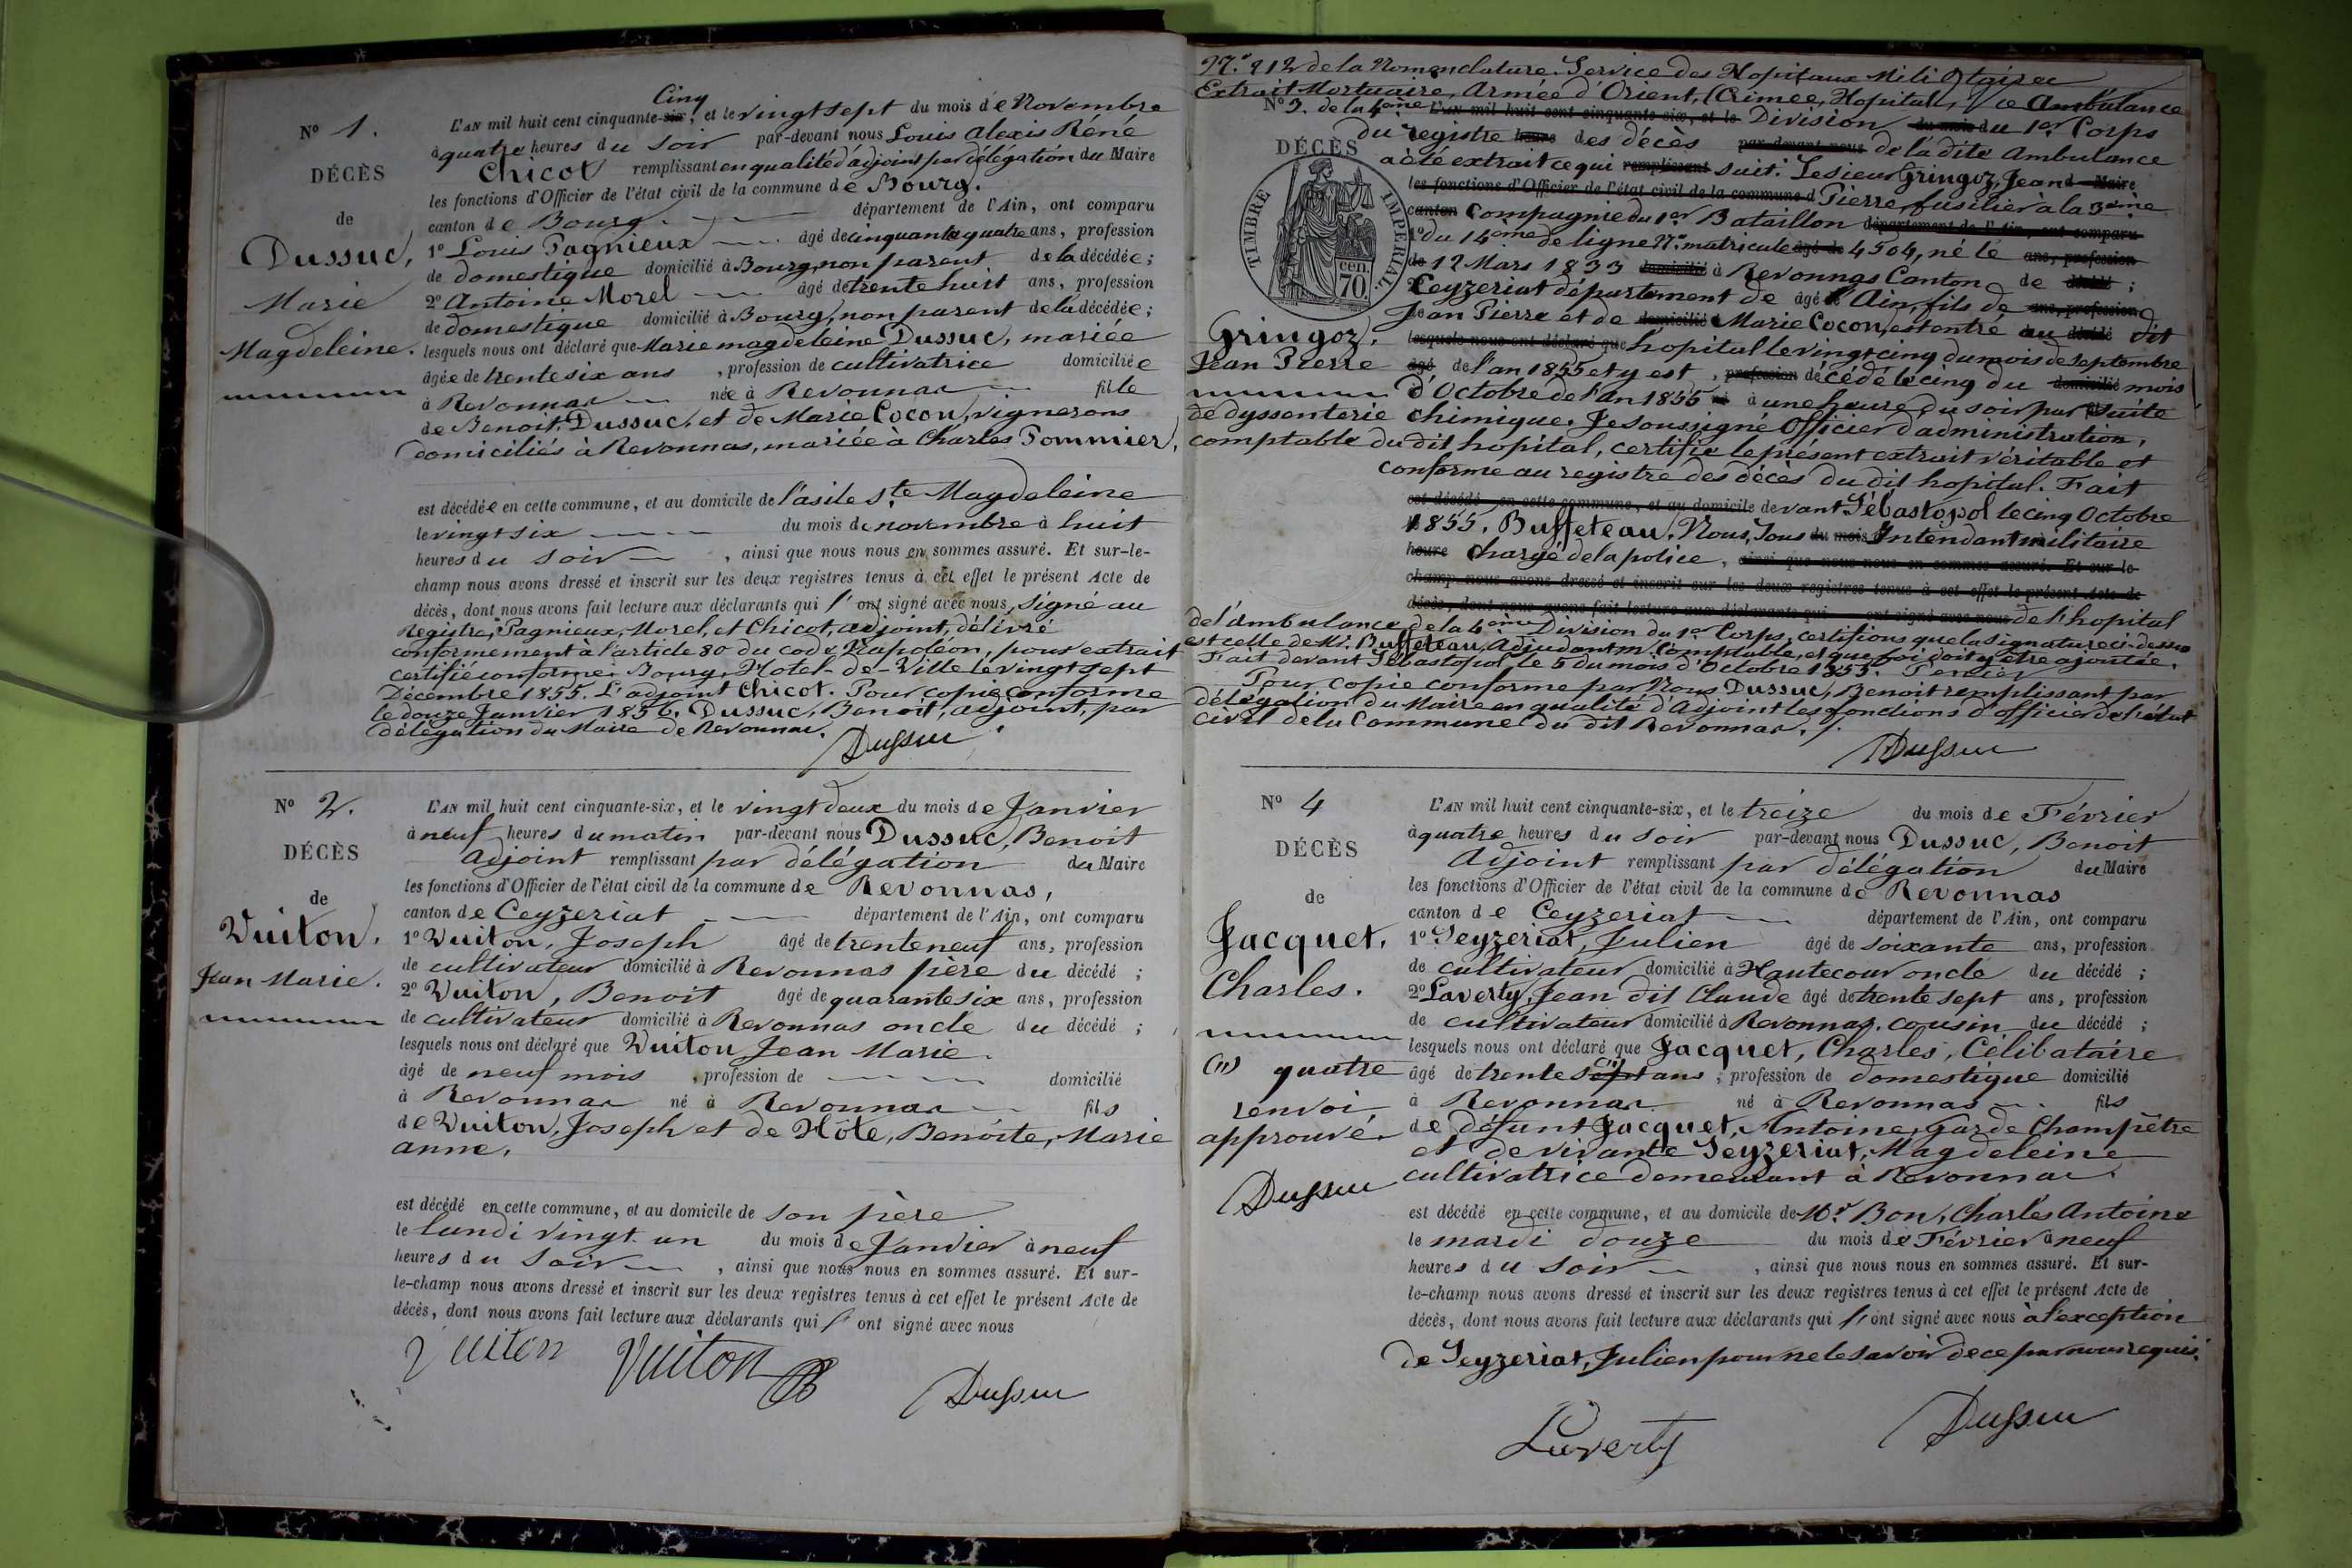 N° 1.
DÉCÈS
de
Dussuc,
Marie
Magdeleine.
Cinq
L'AN mil huit cent cinquante-six, et le vingt sept du mois de Novembre
à quatre heures du soir par-devant nous Louis Alexis Réné
Chicot remplissant en qualité d'adjoint par délégation du Maire
les fonctions d'Officier de l'état civil de la commune de Bourg.
canton de Bourg département de l'Ain, ont comparu
1° Louis Pagnieux âgé de cinquante quatre ans, profession
de domestique domicilié à Bourg, non parent de la décédée ;
2° Antoine Morel âgé de trente huit ans, profession
de domestique domicilié à Bourg, non parent de la décédée ;
lesquels nous ont déclaré que Marie magdeleine Dussuc, mariée
âgée de trente six ans , profession de cultivatrice domiciliée
à Revonnas née à Revonnas fille
de Benoit Dussuc, et de Marie Cocon, vignerons
domiciliés à Revonnas, mariée à Charles Pommier,
est décédée en cette commune, et au domicile de l'asile Ste Magdeleine
le vingt six du mois de novembre à huit
heures du soir , ainsi que nous nous en sommes assuré. Et sur-le-
champ nous avons dressé et inscrit sur les deux registres tenus à cet effet le présent Acte de
décès, dont nous avons fait lecture aux déclarants qui l'ont signé avec nous, signé au
Registre, Pagnieux, Morel, et Chicot, adjoint, délivré
conformement à l'article 80 du code Napoléon, pour extrait
certifié conforme. Bourg, Hotel-de-Ville le vingt sept
Décembre 1855. L'adjoint Chicot. Pour copie conforme
le douze Janvier 1856. Dussuc, Benoit, adjoint, par
délégation du Maire de Revonnas.
Dussuc
N° 2.
DÉCÈS
de
Vuiton,
Jean Marie.
L'AN mil huit cent cinquante-six, et le vingt deux du mois de Janvier
à neuf heures du matin par-devant nous Dussuc, Benoit
Adjoint remplissant par délégation du Maire
les fonctions d'Officier de l'état civil de la commune de Revonnas,
canton de Ceyzeriat département de l'Ain, ont comparu
1° Vuiton, Joseph âgé de trente neuf ans, profession
de cultivateur domicilié à Revonnas père du décédé ;
2° Vuiton, Benoit âgé de quarante six ans, profession
de cultivateur domicilié à Revonnas oncle du décédé ;
lesquels nous ont déclaré que Vuiton Jean Marie.
âgé de neuf mois , profession de domicilié
à Revonnas né à Revonnas fils
de Vuiton, Joseph et de Hôte, Benoite, Marie
anne.
est décédé en cette commune, et au domicile de son père
le lundi vingt un du mois de Janvier à neuf
heures du soir , ainsi que nous nous en sommes assuré. Et sur-
le-champ nous avons dressé et inscrit sur les deux registres tenus à cet effet le présent Acte de
décès, dont nous avons fait lecture aux déclarants qui l'ont signé avec nous
Vuiton Vuiton B Dussuc
N.° 212 de la Nomenclature. Service des Hopitaux Militaires
Extrait Mortuaire, Armée d'Orient, (Crimée, Hopital, Ve Ambulance
N° 3. de la 4ème L'AN mil huit cent cinquante-six, et le Division du mois du 1er Corps
du registre heure des décès par-devant nous de la dite Ambulance
DÉCÈS
a été extrait ce qui remplissant suit: Le sieur Gringoz, Jean d Maire
les fonctions d'Officier de l'état civil de la commune d Pierre, fusilier à la 3ème
canton Compagnie du 1er Bataillon département de l'Ain, ont comparu
1° du 14ème de ligne N° matricule âgé de 4504, né le ans, profession
de 12 Mars 1833 domicilié à Revonnas Canton de décédé ;
Ceyzeriat département de âgé l'Ain, fils de ans, profession
Jean Pierre et de domicilié Marie Cocon, est entré au décédé dit
TIMBRE IMPERIAL
70 cen.
Gringoz,
Jean Pierre
lesquels nous ont déclaré que hopital le vingt cinq du mois de Septembre
âgé de l'an 1855 et y est , profession décédé le cinq du domicilié mois
d'Octobre de l'an 1855 à une heure du soir par suite
de dyssenterie chimique. Je soussigné Officier d'administration,
comptable du dit hopital, certifie le présent extrait véritable et
conforme au registre des décès du dit hopital. Fait
est décédé en cette commune, et au domicile devant Sébastopol le cinq Octobre
1855. Buffeteau. Nous, Sous du mois Intendant militaire
heure chargé de la police, ainsi que nous nous en sommes assuré. Et sur-le-
champ nous avons dressé et inscrit sur les deux registres tenus à cet effet le présent Acte de
décès, dont nous avons fait lecture aux déclarants qui ont signé avec nous de l'hopital
de l'ambulance de la 4ème Division du 1er Corps, certifions que la signature ci-dessus
est celle de Mr. Buffeteau, Adjudant en Comptable, et que foi doit y être ajoutée.
Fait devant Sébastopol, le 5 du mois d'Octobre 1855.
Pour copie conforme par Nous Dussuc, Benoit remplissant par
délégation du Maire en qualité d'Adjoint les fonctions d'officier de l'état
civil de la Commune du dit Revonnas.
Dussuc
N° 4
DÉCÈS
de
Jacquet,
Charles.
(1) quatre
renvoi
approuvé.
Dussuc
L'AN mil huit cent cinquante-six, et le treize du mois de Février
à quatre heures du soir par-devant nous Dussuc, Benoit
Adjoint remplissant par délégation du Maire
les fonctions d'Officier de l'état civil de la commune de Revonnas
canton de Ceyzeriat département de l'Ain, ont comparu
1° Seyzeriat, Julien âgé de soixante ans, profession
de cultivateur domicilié à Hautecour oncle du décédé ;
2° Laverty, Jean dit Claude âgé de trente sept ans, profession
de cultivateur domicilié à Revonnas, cousin du décédé ;
lesquels nous ont déclaré que Jacquet, Charles, Célibataire
âgé de trente sept (1) ans , profession de domestique domicilié
à Revonnas né à Revonnas fils
de défunt Jacquet, Antoine, garde Champêtre
et de vivante Seyzeriat, Magdeleine
cultivatrice demeurant à Revonnas.
est décédé en cette commune, et au domicile de Mr. Bon, Charles Antoine
le mardi douze du mois de Février à neuf
heures du soir , ainsi que nous nous en sommes assuré. Et sur-
le-champ nous avons dressé et inscrit sur les deux registres tenus à cet effet le présent Acte de
décès, dont nous avons fait lecture aux déclarants qui l'ont signé avec nous à l'exception
de Seyzeriat, Julien pour ne le savoir de ce par nous requis.
Laverty Dussuc